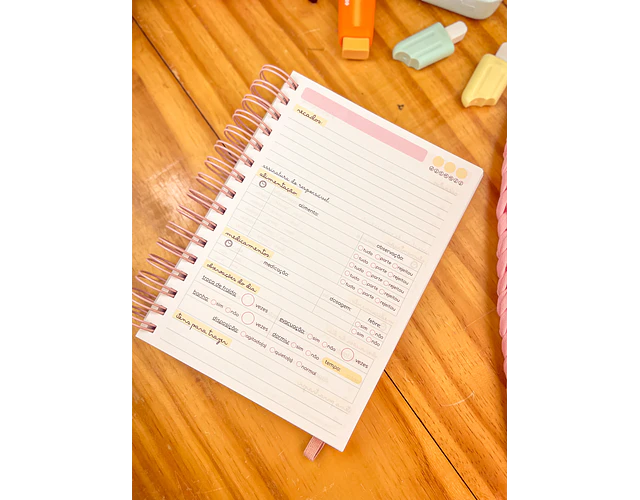 recados
assinatura do responsável
alimentação
alimento
observação
tudo parte rejeitou
tudo parte rejeitou
tudo parte rejeitou
tudo parte rejeitou
tudo parte rejeitou
medicamentos
medicação
dosagem
febre
sim não
sim não
observações do dia
troca de fralda vezes
banho sim não vezes
evacuação sim não vezes
disposição agitado(a) quieto(a) normal
dormiu sim não
tempo
itens para trazer